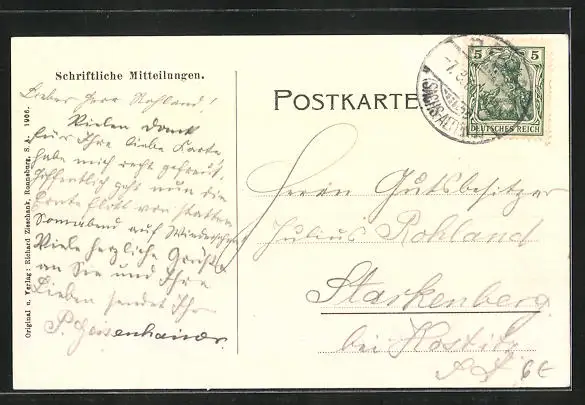 Schriftliche Mitteilungen.
Lieber Herr Rohland!
Vielen Dank
für Ihre liebe Karte
habe mich recht gefreut,
hoffentlich geht nun die
Ernte flott von statten
Sonnabend auf Wiedersehen
Viele herzliche Grüße
an Sie und Ihre
Lieben sendet Ihr
Original u. Verlag: Richard Zieschank, Ronneburg, S.-A. 1906.
POSTKARTE
5 5
DEUTSCHES REICH
Herrn Gutsbesitzer
Julius Rohland
Starkenberg
bei Rositz
6€